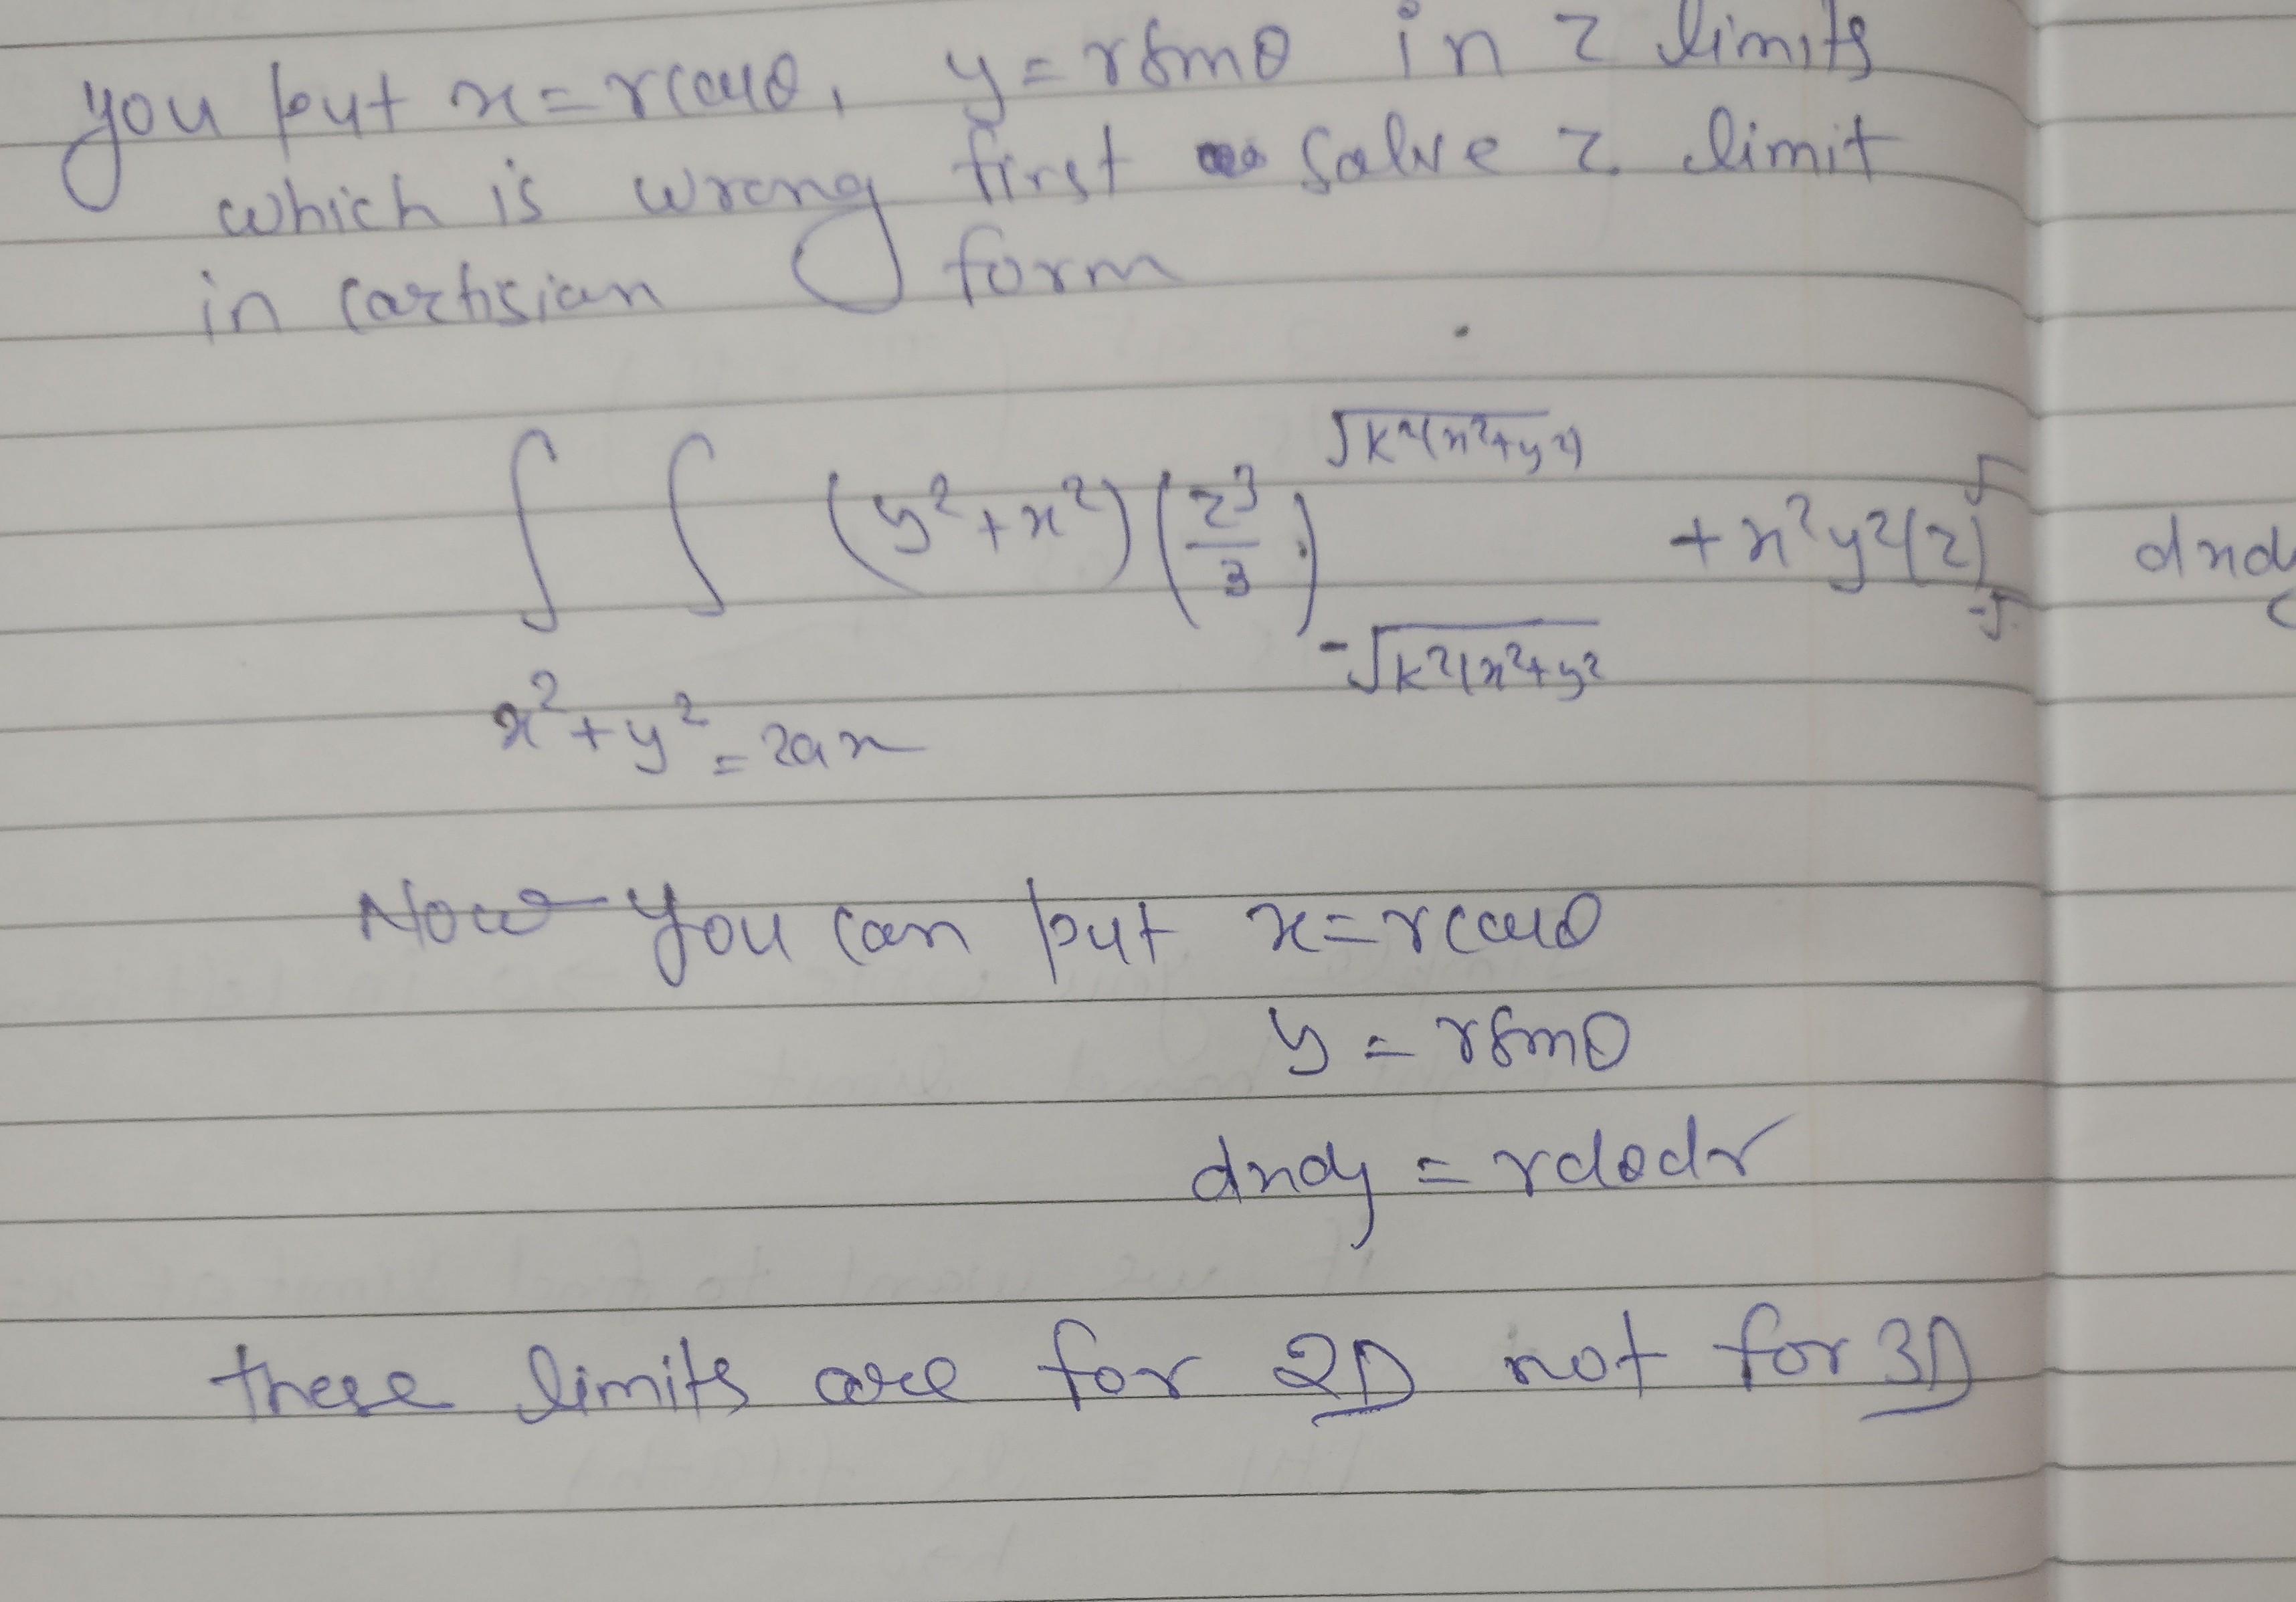 you put x=rcosθ, y=rsinθ in z limits
which is wrong first solve z limit
in cartisian form
∫ ∫ (y²+x²)(z³/3)_{-√k²(x²+y²}^{√k²(x²+y²)} + x²y²(z)_{-√}^{√} dxdy
x²+y²=2ax
Now you can put x=rcosθ
y=rsinθ
dxdy = rdθdr
these limits are for 2D not for 3D